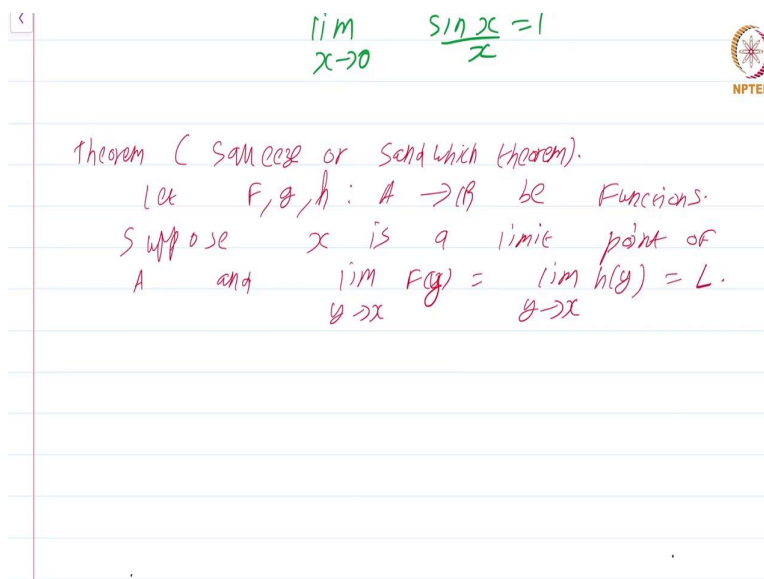 lim sin x / x = 1
x→0
NPTEL
Theorem (Squeeze or Sandwhich theorem).
Let F, g, h : A → ℝ be Functions.
Suppose x is a limit point of
A and lim F(y) = lim h(y) = L.
y→x y→x